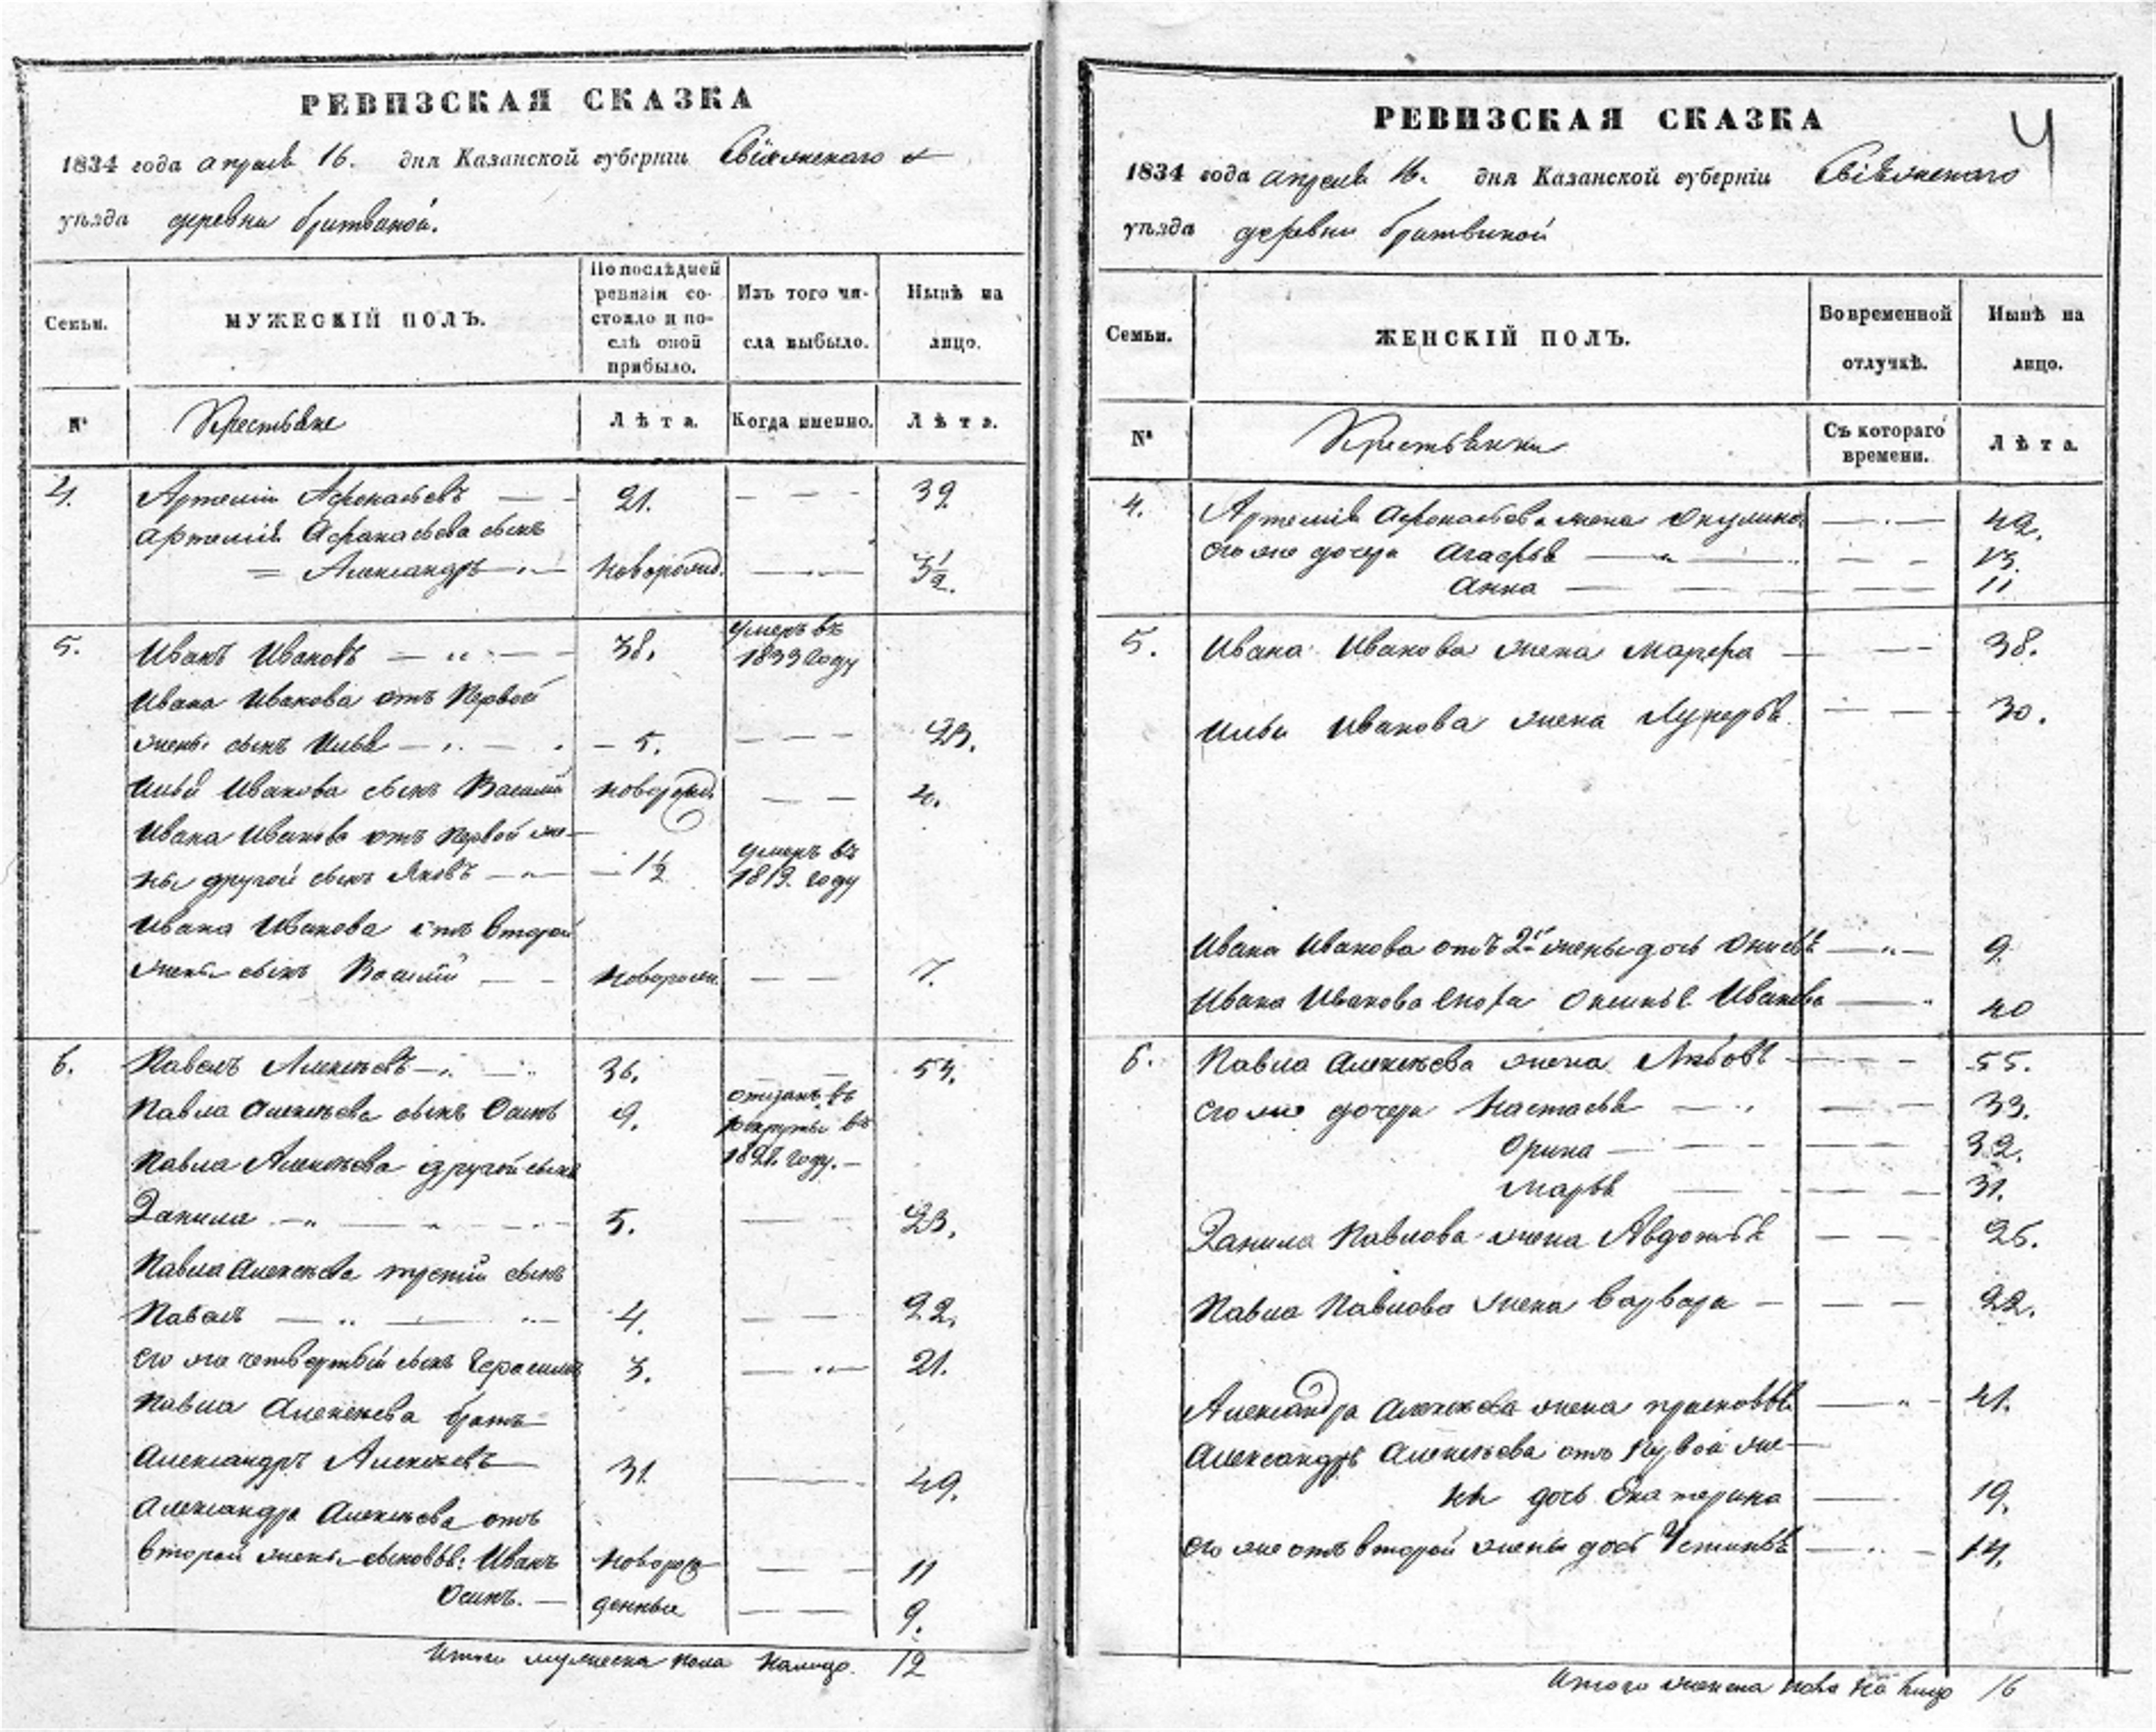 РЕВИЗСКАЯ СКАЗКА
1834 года апреля 16. дня Казанской губерніи Свіяжскаго
уѣзда деревни бритвиной.
Семьи.
МУЖЕСКІЙ ПОЛЪ.
По послѣдней ревизіи со-
стояло и по-
слѣ оной
прибыло.
Изъ того чи-
сла выбыло.
Нынѣ на
лицо.
№
Крестьяне
Лѣта.
Когда именно.
Лѣта.
4. Артемій Афонасьевъ 21. 39
Артемія Афанасьева сынъ
Александръ новорожд. 3 1/2.
5. Иванъ Ивановъ 38. умеръ въ
1833 году
Ивана Иванова отъ первой
жены сынъ Илья 5. 23.
Ильи Иванова сынъ Василій новорожд. 4.
Ивана Иванова отъ первой же-
ны другой сынъ Яковъ 1 1/2 умеръ въ
1819. году
Ивана Иванова отъ второй
жены сынъ Василій новорожд. 7.
6. Павелъ Алексѣевъ 36. 54.
Павла Алексѣева сынъ Осипъ 9. отданъ въ
рекруты въ
году.
Павла Алексѣева другой сынъ
Данила 5. 23.
Павла Алексѣева третій сынъ
Павелъ 4. 22.
его же четвертый сынъ Герасимъ 3. 21.
Павла Алексѣева братъ
Александръ Алексѣевъ 31. 49.
Александра Алексѣева отъ
второй жены сыновья: Иванъ новорож 11
Осипъ. денные 9.
Итого мужеска пола налицо. 12
4
РЕВИЗСКАЯ СКАЗКА
1834 года апреля 16. дня Казанской губерніи Свіяжскаго
уѣзда деревни бритвиной
Семьи.
ЖЕНСКІЙ ПОЛЪ.
Во временной
отлучкѣ.
Нынѣ на
лицо.
№
Крестьянки
Съ котораго
времени.
Лѣта.
4. Артемія Афонасьева жена Окулина 42.
его же дочери Агафья 13.
Анна 11
5. Ивана Иванова жена Марфа 38.
Ильи Иванова жена Лукерья 30.
Ивана Иванова отъ 2й жены дочь Онисья 9.
Ивана Иванова Иванова 40
6. Павла Алексѣева жена Любовь 55.
его же дочери Настасья 33.
Орина 32.
Марья 31.
Данила Павлова жена Авдотья 25.
Павла Павлова жена Варвара 22.
Александра Алексѣева жена Прасковья 41.
Александра Алексѣева отъ первой же-
ны дочь Екатерина 19.
его же отъ второй жены дочь Устинья 14.
Итого женска пола на лицо 16